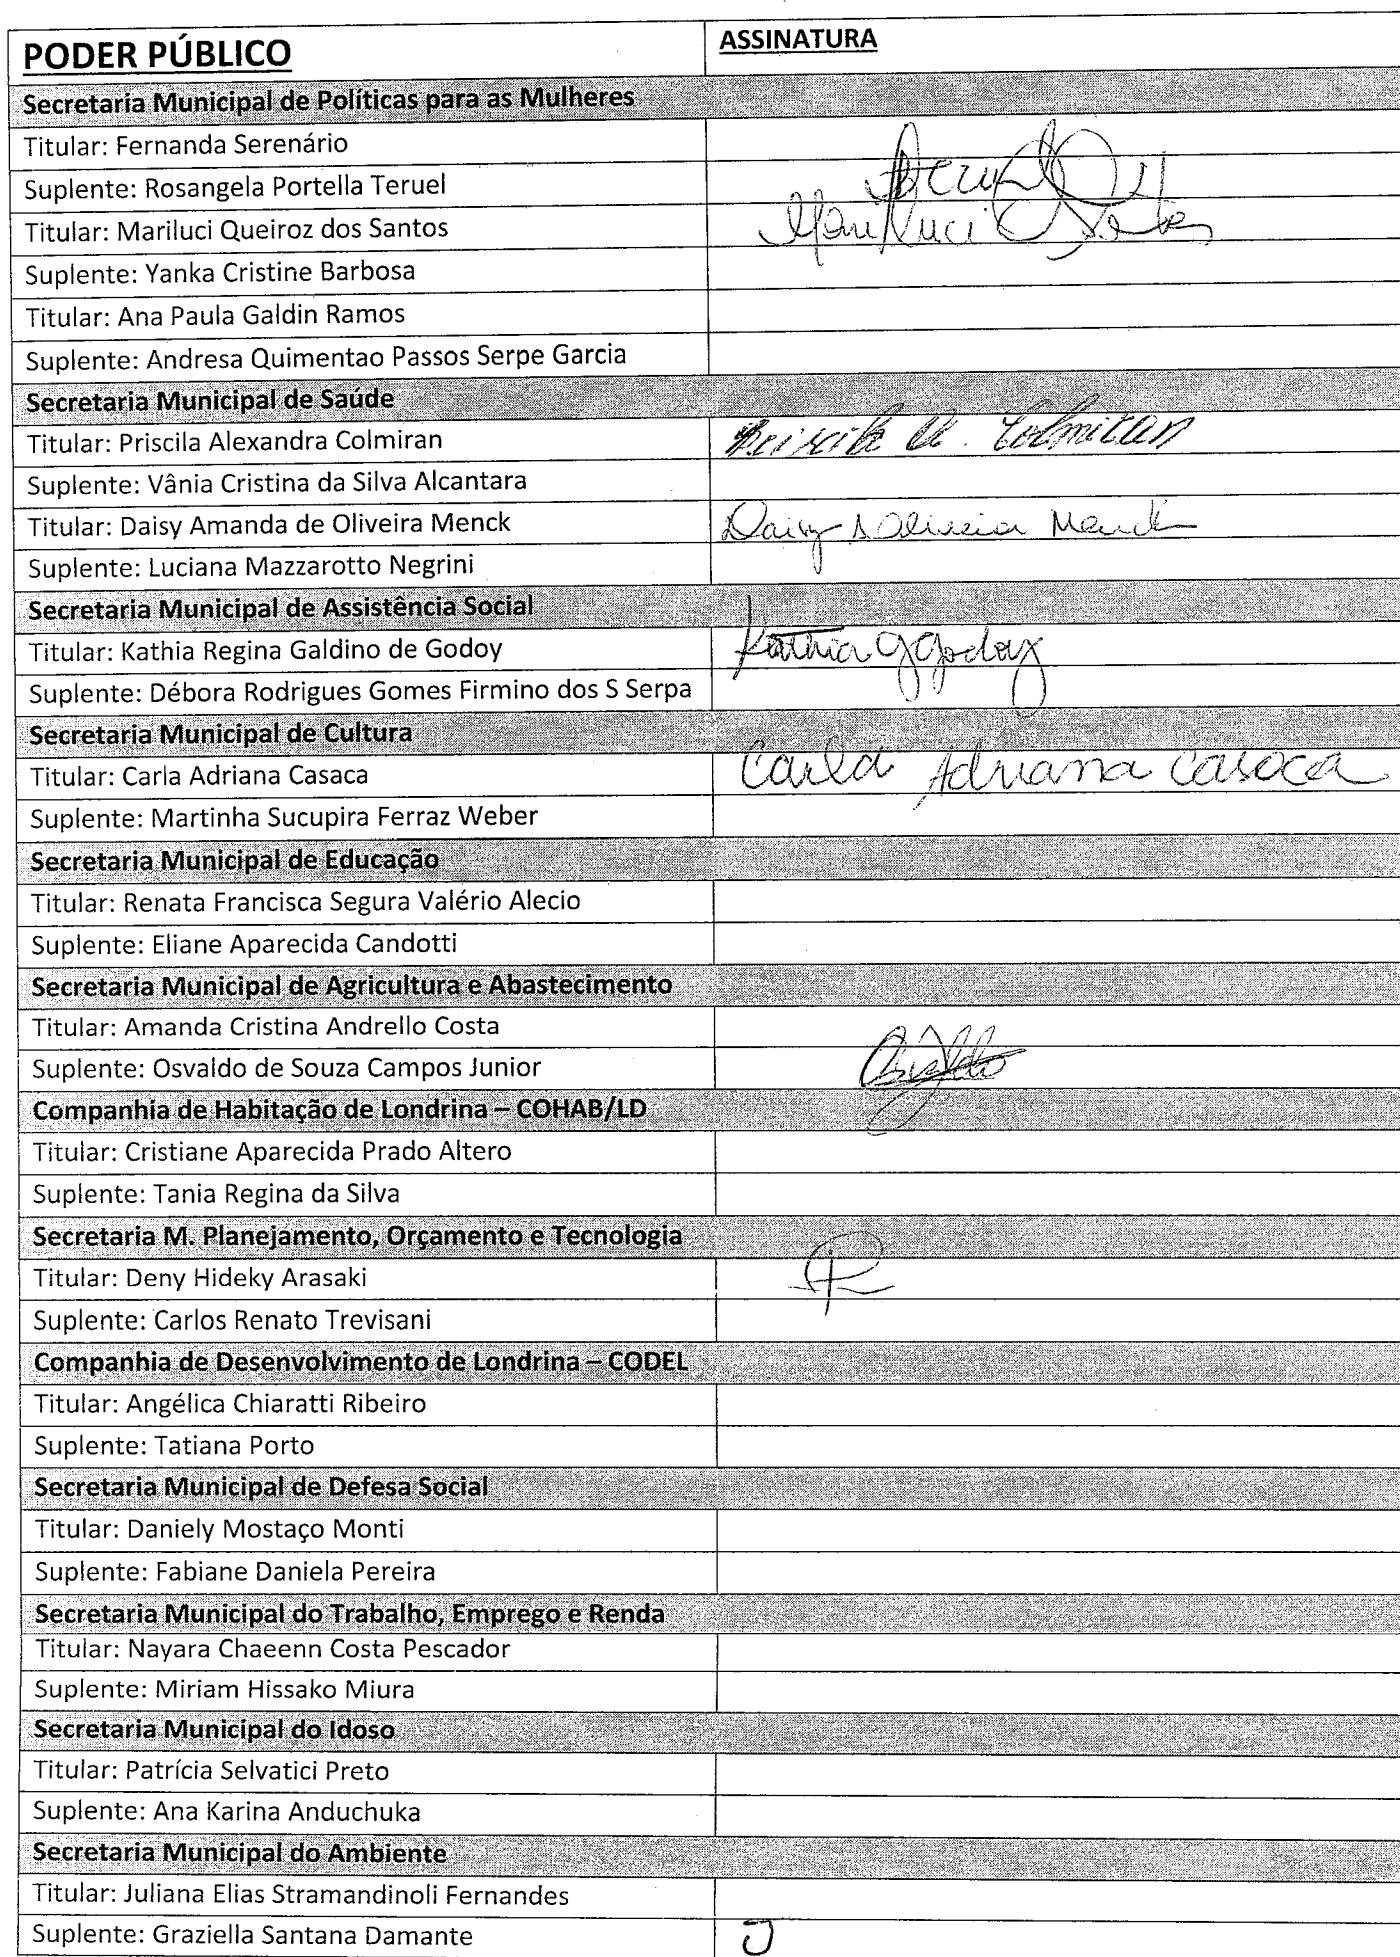 PODER PÚBLICO
ASSINATURA
Secretaria Municipal de Políticas para as Mulheres
Titular: Fernanda Serenário
Suplente: Rosangela Portella Teruel
Titular: Mariluci Queiroz dos Santos
Mariluci
Suplente: Yanka Cristine Barbosa
Titular: Ana Paula Galdin Ramos
Suplente: Andresa Quimentao Passos Serpe Garcia
Secretaria Municipal de Saúde
Titular: Priscila Alexandra Colmiran
Priscila A. Colmiran
Suplente: Vânia Cristina da Silva Alcantara
Titular: Daisy Amanda de Oliveira Menck
Daisy A Oliveira Menck
Suplente: Luciana Mazzarotto Negrini
Secretaria Municipal de Assistência Social
Titular: Kathia Regina Galdino de Godoy
Kathia G Godoy
Suplente: Débora Rodrigues Gomes Firmino dos S Serpa
Secretaria Municipal de Cultura
Titular: Carla Adriana Casaca
Carla Adriana Casaca
Suplente: Martinha Sucupira Ferraz Weber
Secretaria Municipal de Educação
Titular: Renata Francisca Segura Valério Alecio
Suplente: Eliane Aparecida Candotti
Secretaria Municipal de Agricultura e Abastecimento
Titular: Amanda Cristina Andrello Costa
Suplente: Osvaldo de Souza Campos Junior
Osvaldo
Companhia de Habitação de Londrina – COHAB/LD
Titular: Cristiane Aparecida Prado Altero
Suplente: Tania Regina da Silva
Secretaria M. Planejamento, Orçamento e Tecnologia
Titular: Deny Hideky Arasaki
Suplente: Carlos Renato Trevisani
Companhia de Desenvolvimento de Londrina – CODEL
Titular: Angélica Chiaratti Ribeiro
Suplente: Tatiana Porto
Secretaria Municipal de Defesa Social
Titular: Daniely Mostaço Monti
Suplente: Fabiane Daniela Pereira
Secretaria Municipal do Trabalho, Emprego e Renda
Titular: Nayara Chaeenn Costa Pescador
Suplente: Miriam Hissako Miura
Secretaria Municipal do Idoso
Titular: Patrícia Selvatici Preto
Suplente: Ana Karina Anduchuka
Secretaria Municipal do Ambiente
Titular: Juliana Elias Stramandinoli Fernandes
Suplente: Graziella Santana Damante